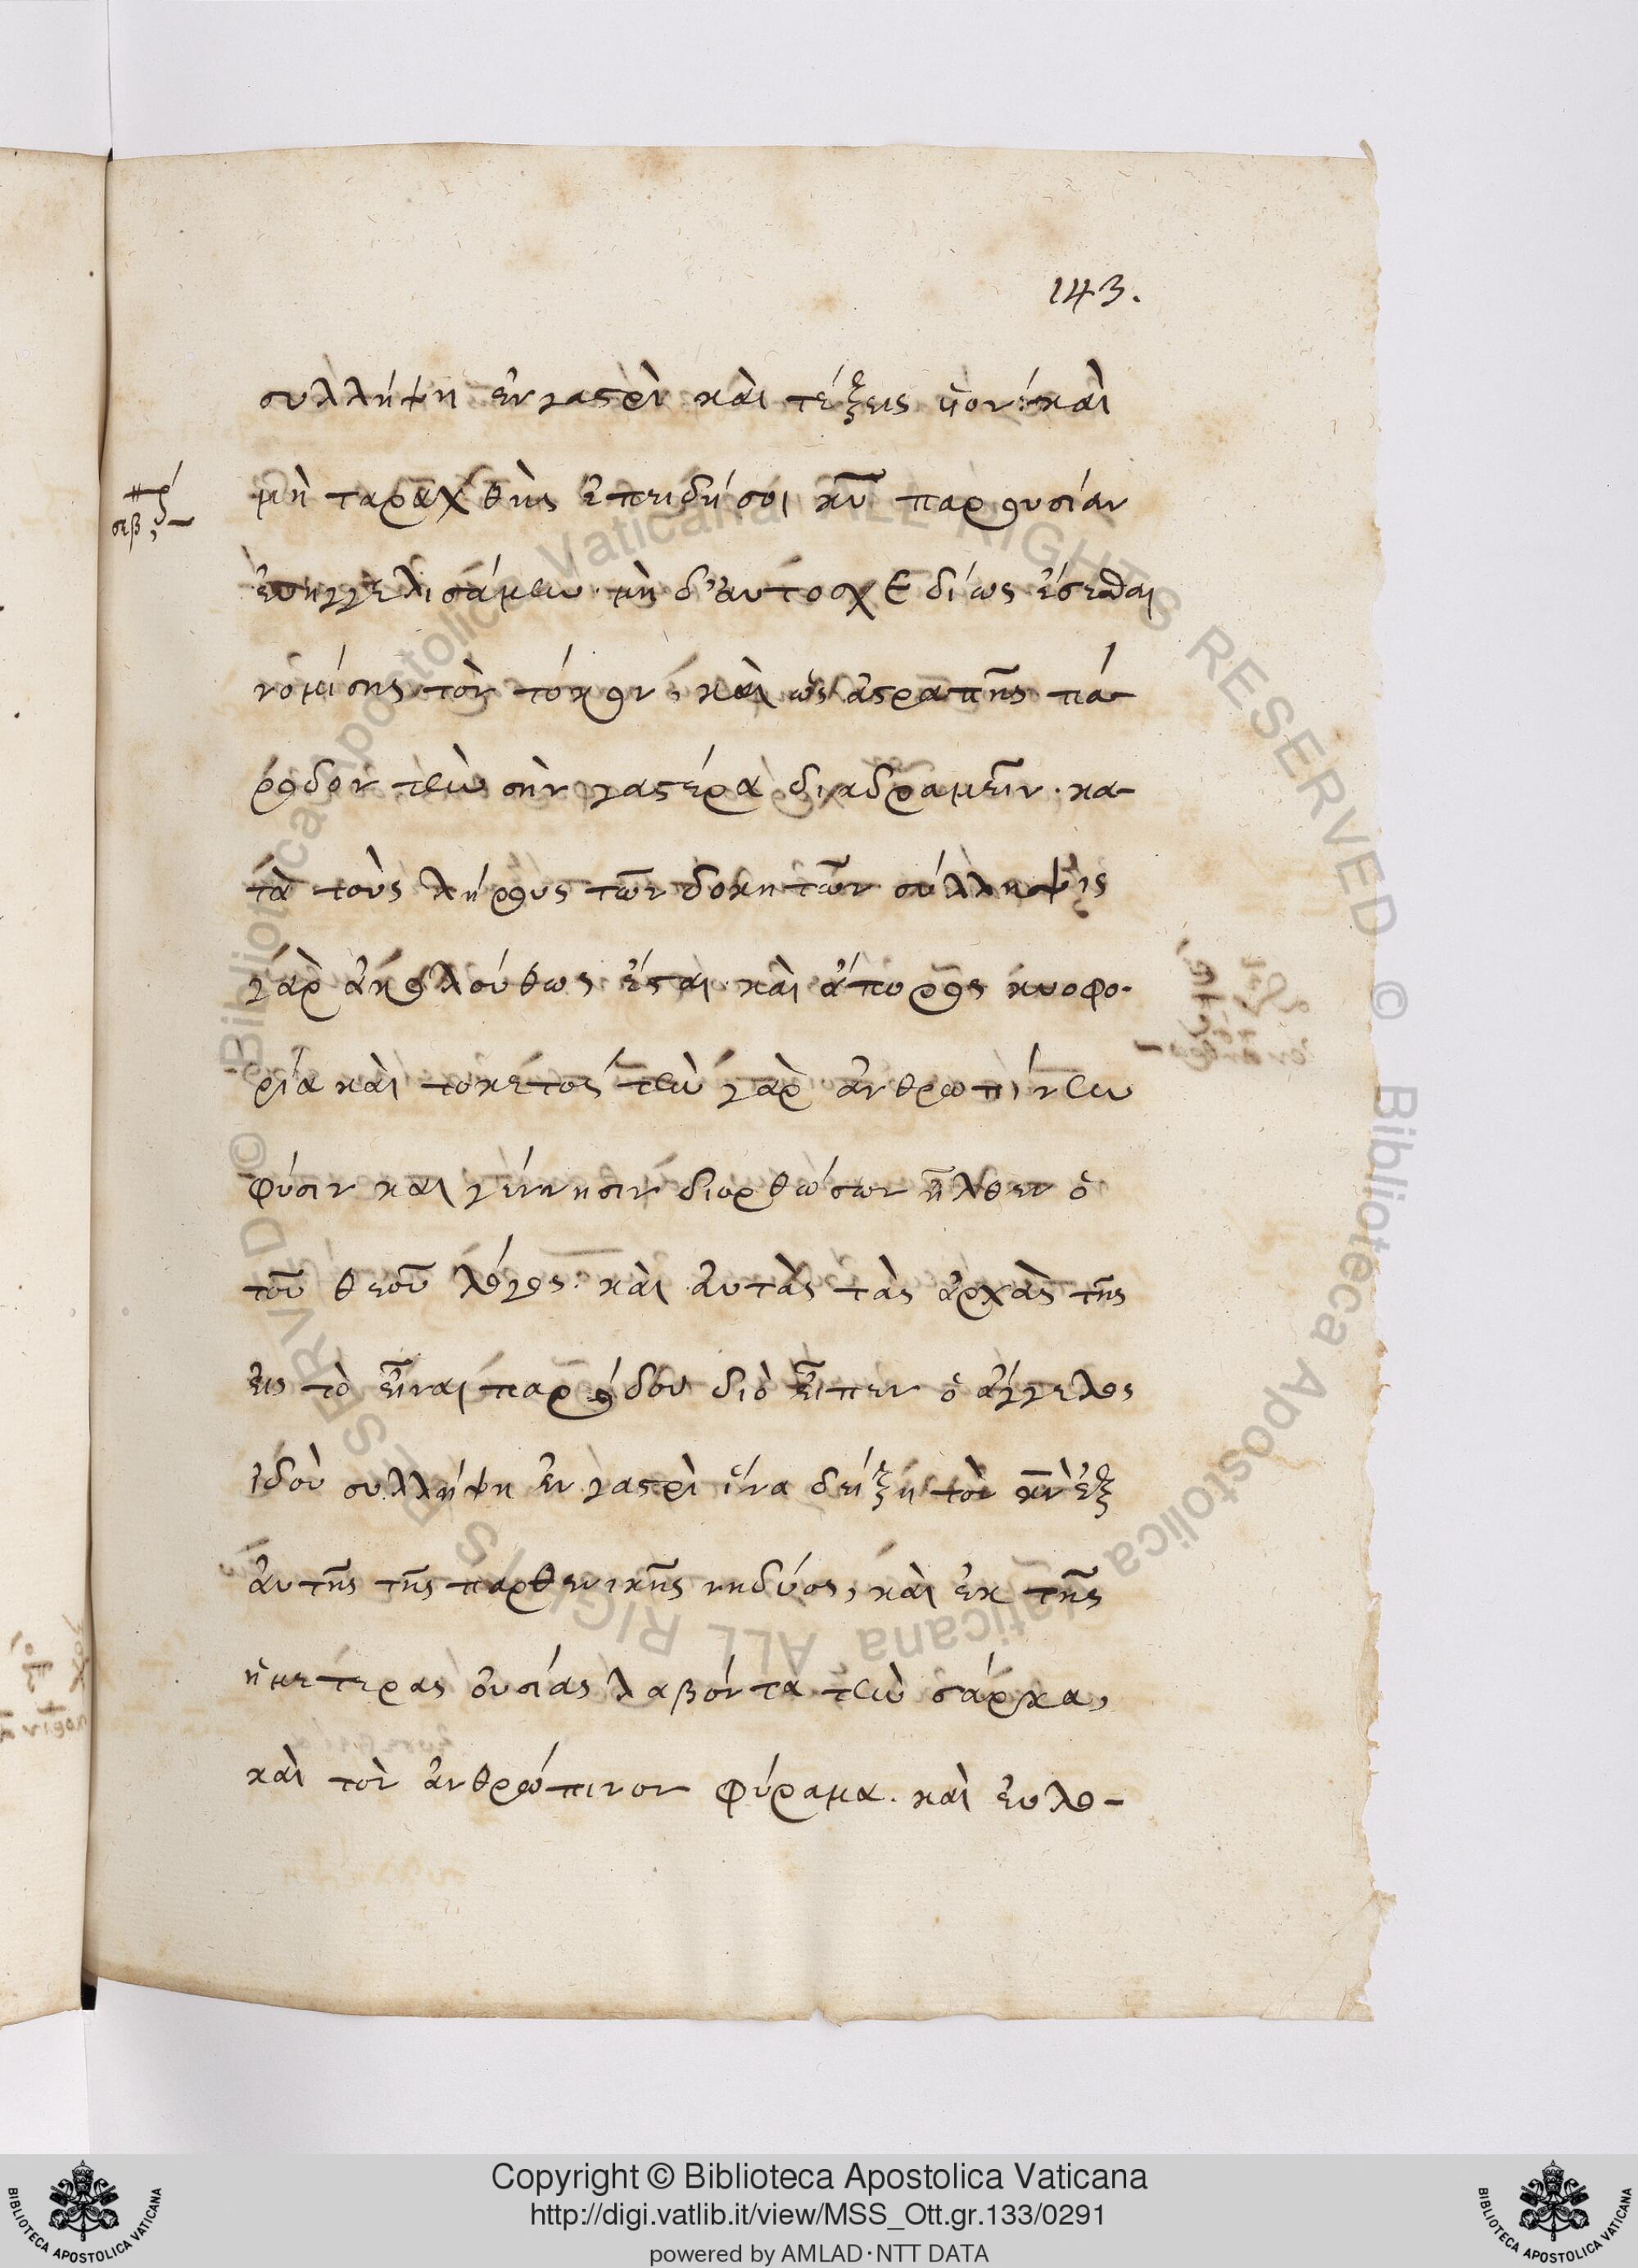 143.
συλλήψη ἐν γαστρὶ καὶ τέξεις ὑιόν· καὶ
μὴ ταραχθῆς ἐπειδή σοι κυ̅ παρουσίαν
ἐυηγγελισάμην· μὴ δ' ἀυτοσχεδίως ἔσεσθαι
νομίσης τὸν τόκον, καὶ ὡς ἀστραπῆς πά-
ροδον τὴν σὴν γαστέρα διαδραμεῖν. κα-
τὰ τοὺς λήρους τῶν δοκητῶν σύλληψις
γὰρ ἀκολούθως ἔσται καὶ ἄπορος κυοφο-
ρία καὶ τοκετός τὴν γὰρ ἀνθρωπίνην
φύσιν και γέννησιν διορθώσων ἦλθεν ὁ
τοῦ θεοῦ λόγος· καὶ ἀυτὰς τὰς ἀρχὰς τῆς
εἰς τὸ εἶναι παρόδου διὸ εἶπεν ὁ ἄγγελος
ἰδοὺ συλλήψη ἐν γαστρὶ ἵνα δείξη τὸν κ̅ν̅ ἐξ
ἀυτῆς τῆς παρθενικῆς νηδύος, καὶ ἐκ τῆς
ἡμετέρας ὀυσίας λαβόντα τὴν σάρκα,
καὶ τὸν ἀνθρώπινον φύραμα. καὶ ἐυλο-
Copyright © Biblioteca Apostolica Vaticana
http://digi.vatlib.it/view/MSS_Ott.gr.133/0291
powered by AMLAD·NTT DATA
BIBLIOTECA APOSTOLICA VATICANA
BIBLIOTECA APOSTOLICA VATICANA
© Biblioteca Apostolica Vaticana ALL RIGHTS RESERVED
© Biblioteca Apostolica Vaticana ALL RIGHTS RESERVED